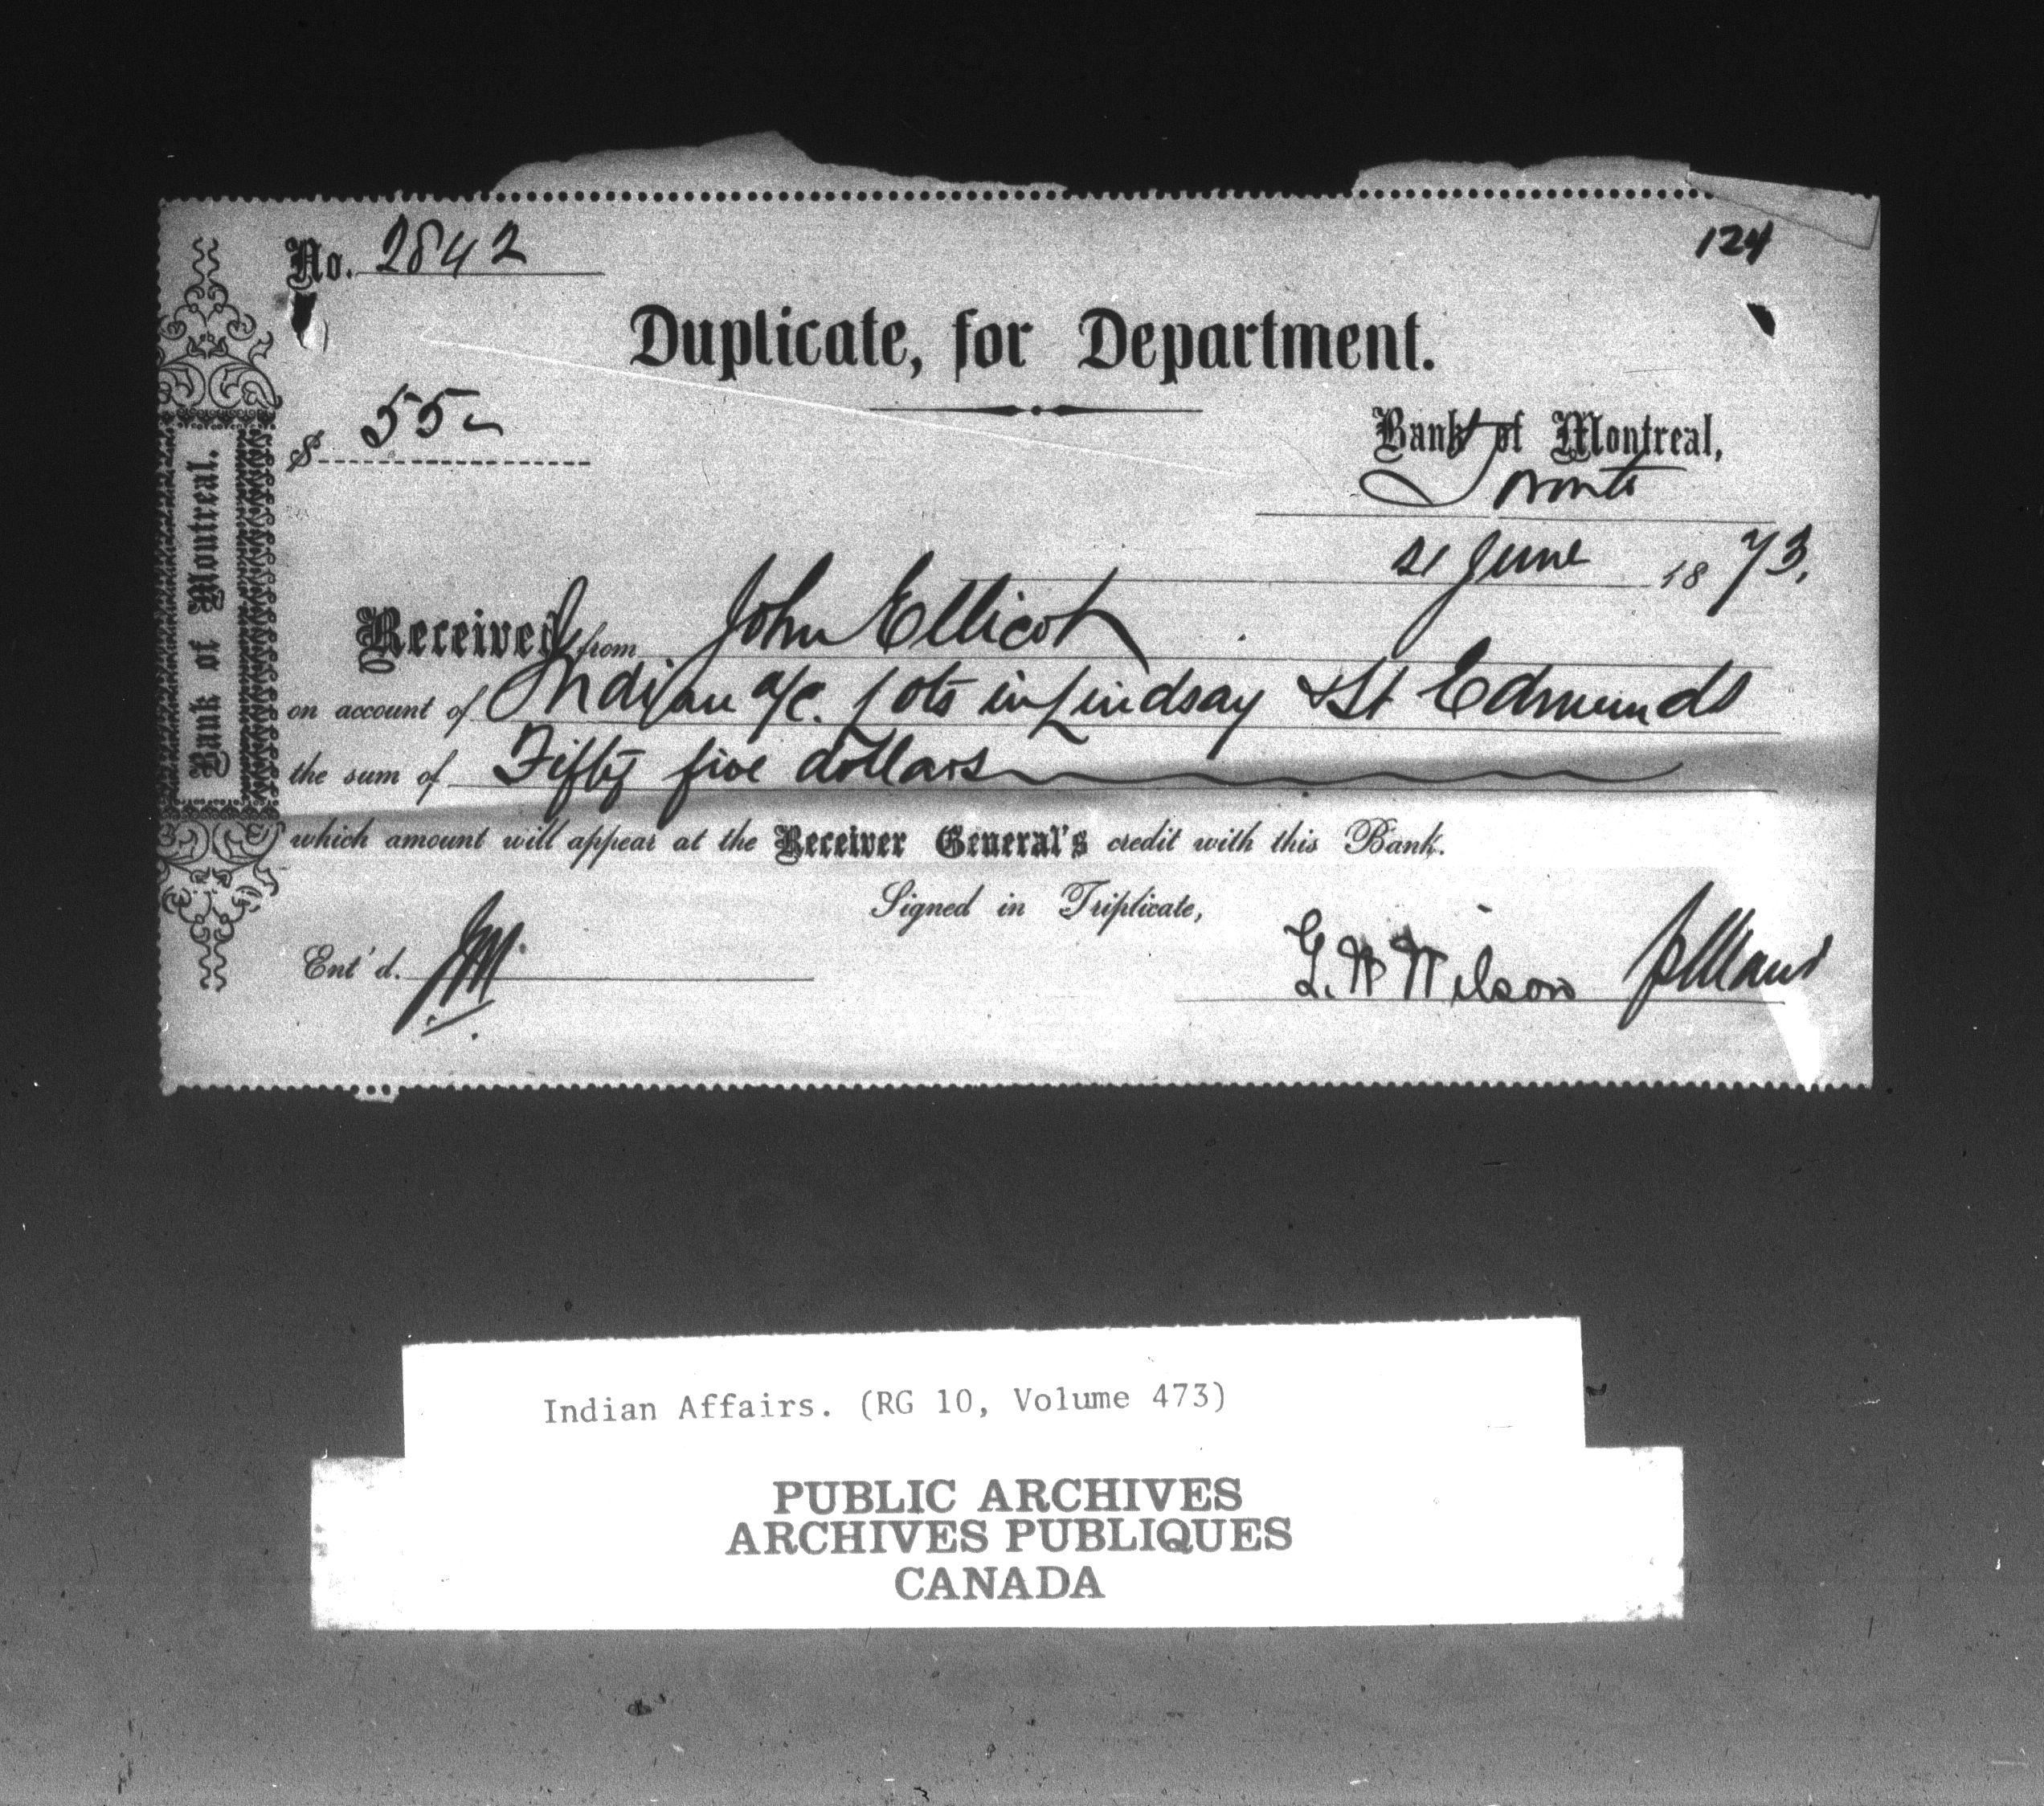 No. 2842
124
Duplicate, for Department.
$ 55-
Bank of Montreal,
Toronto
21 June 1873.
Received from John Ellicot
on account of Indian a/c. lots in Lindsay & St Edmunds
the sum of Fifty five dollars
which amount will appear at the Receiver General's credit with this Bank.
Signed in Triplicate,
Ent'd. JM.
G. W Wilson
Bank of Montreal.
Indian Affairs. (RG 10, Volume 473)
PUBLIC ARCHIVES
ARCHIVES PUBLIQUES
CANADA